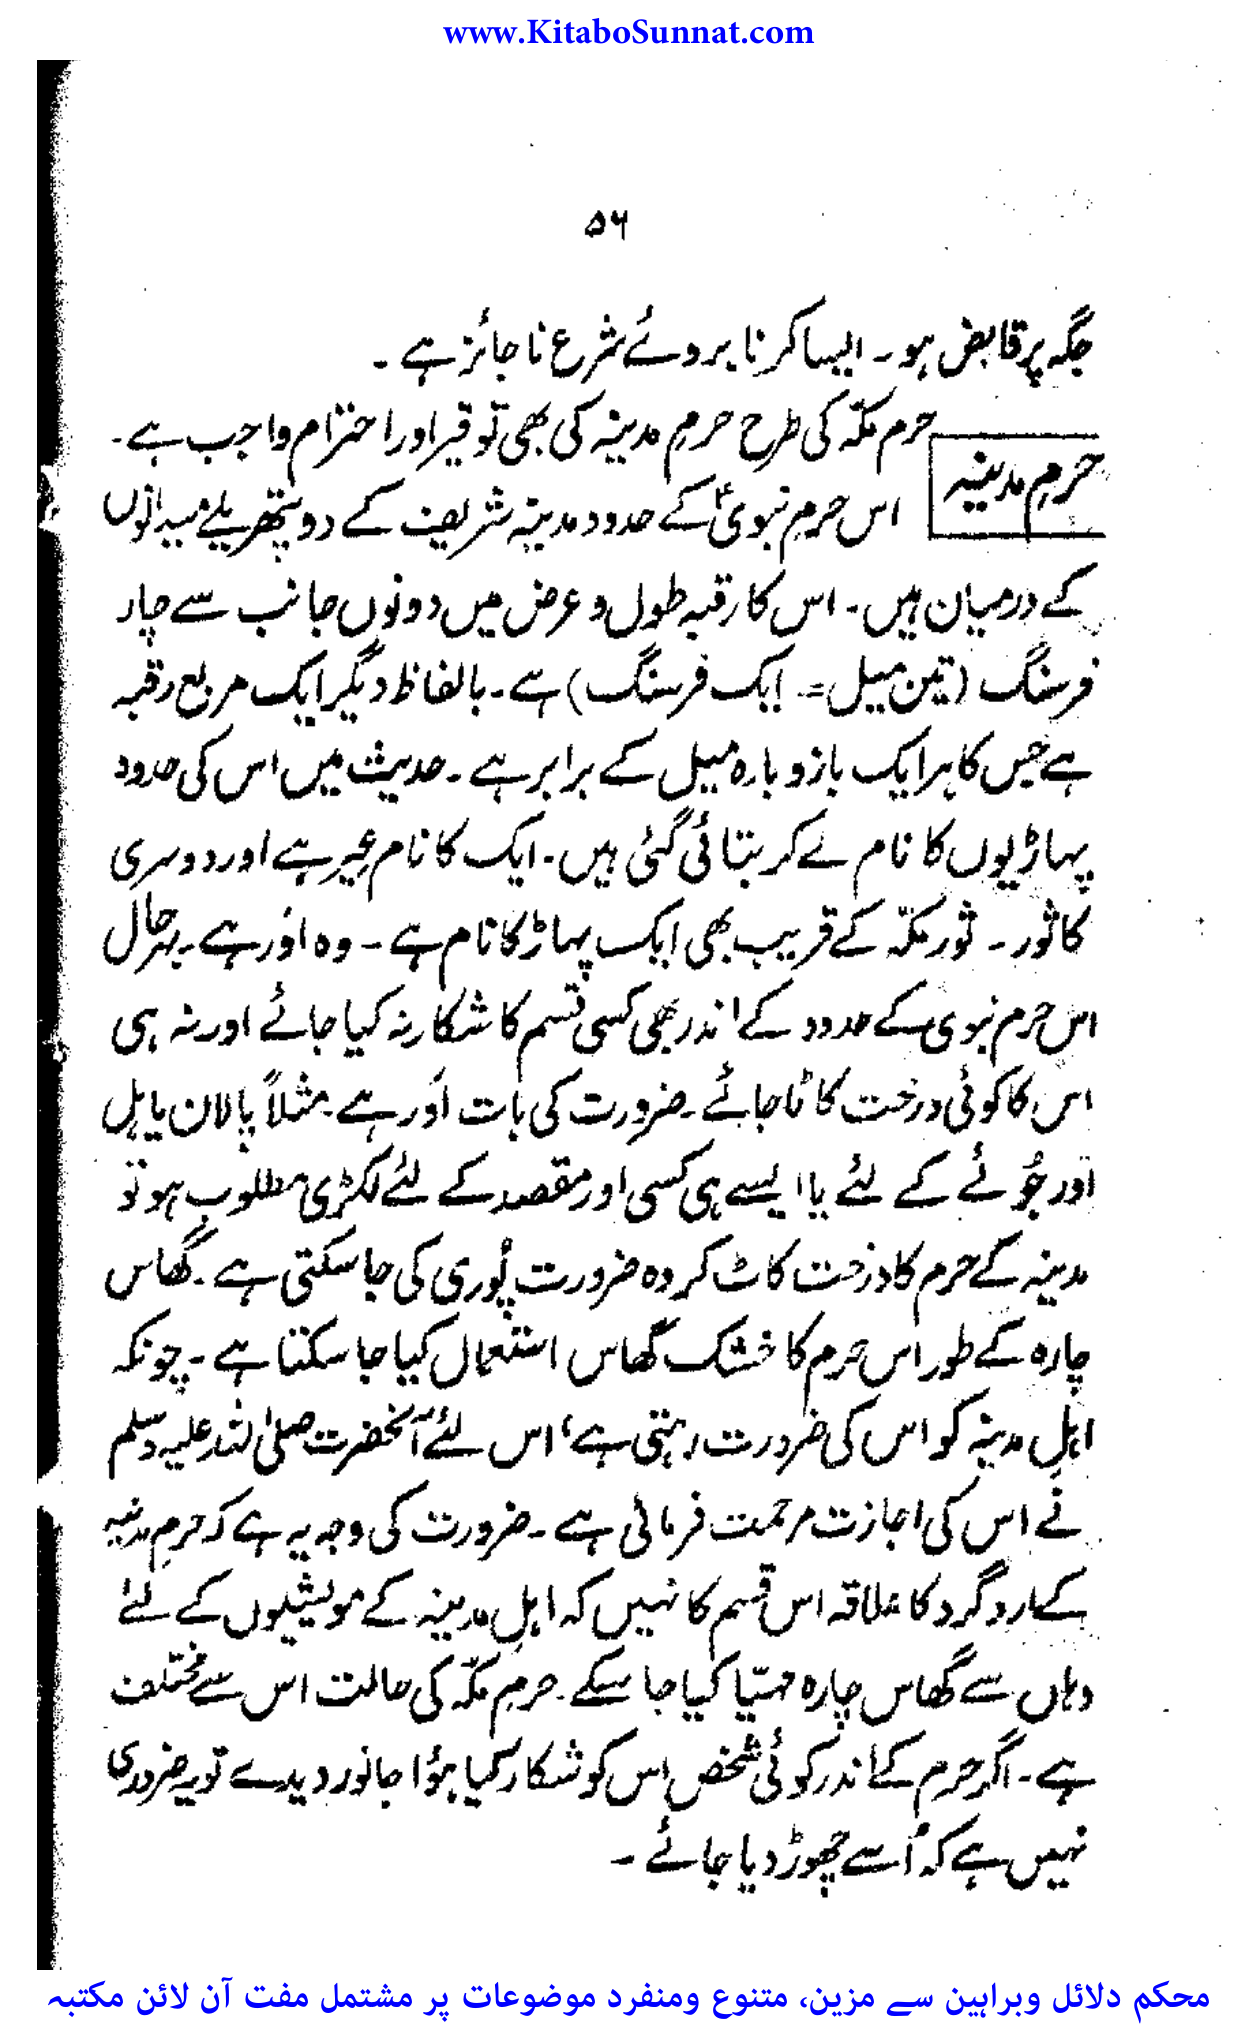 www.KitaboSunnat.com
۵۶
جگہ پر قابض ہو۔ ایسا کرنا بروئے شرع ناجائز ہے۔
حرم مکّہ کی طرح حرمِ مدینہ کی بھی توقیر اور احترام واجب ہے۔
حرمِ مدینہ
اس حرمِ نبویؐ کے حدود مدینہ شریف کے دو پتھریلے میدانوں
کے درمیان ہیں۔ اس کا رقبہ طول و عرض میں دونوں جانب سے چار
فرسنگ (تین میل = ایک فرسنگ) ہے۔ بالفاظ دیگر ایک مربع رقبہ
ہے جس کا ہر ایک بازو بارہ میل کے برابر ہے۔ حدیث میں اس کی حدود
پہاڑیوں کا نام لے کر بتائی گئی ہیں۔ ایک کا نام عیر ہے اور دوسری
کا ثور۔ ثور مکّہ کے قریب بھی ایک پہاڑ کا نام ہے۔ وہ اَور ہے۔ بہرحال
اس حرم نبوی کے حدود کے اندر بھی کسی قسم کا شکار نہ کیا جائے اور نہ ہی
اس کا کوئی درخت کاٹا جائے۔ ضرورت کی بات اَور ہے۔ مثلاً پالان یا ہل
اور جُوئے کے لئے یا ایسے ہی کسی اور مقصد کے لئے لکڑی مطلوب ہو تو
مدینہ کے حرم کا درخت کاٹ کر وہ ضرورت پُوری کی جا سکتی ہے۔ گھاس
چارہ کے طور اس حرم کا خشک گھاس استعمال کیا جا سکتا ہے۔ چونکہ
اہلِ مدینہ کو اس کی ضرورت رہتی ہے، اس لئے آنحضرت صلی اللہ علیہ وسلم
نے اس کی اجازت مرحمت فرمائی ہے۔ ضرورت کی وجہ یہ ہے کہ حرمِ مدینہ
کے ارد گرد کا علاقہ اس قسم کا نہیں کہ اہلِ مدینہ کے مویشیوں کے لئے
وہاں سے گھاس چارہ مہیّا کیا جا سکے۔ حرمِ مکّہ کی حالت اس سے مختلف
ہے۔ اگر حرم کے اندر کوئی شخص اس کو شکار کیا ہؤا جانور دیدے تو یہ ضروری
نہیں ہے کہ اُسے چھوڑ دیا جائے۔
محکم دلائل وبراہین سے مزین، متنوع ومنفرد موضوعات پر مشتمل مفت آن لائن مکتبہ